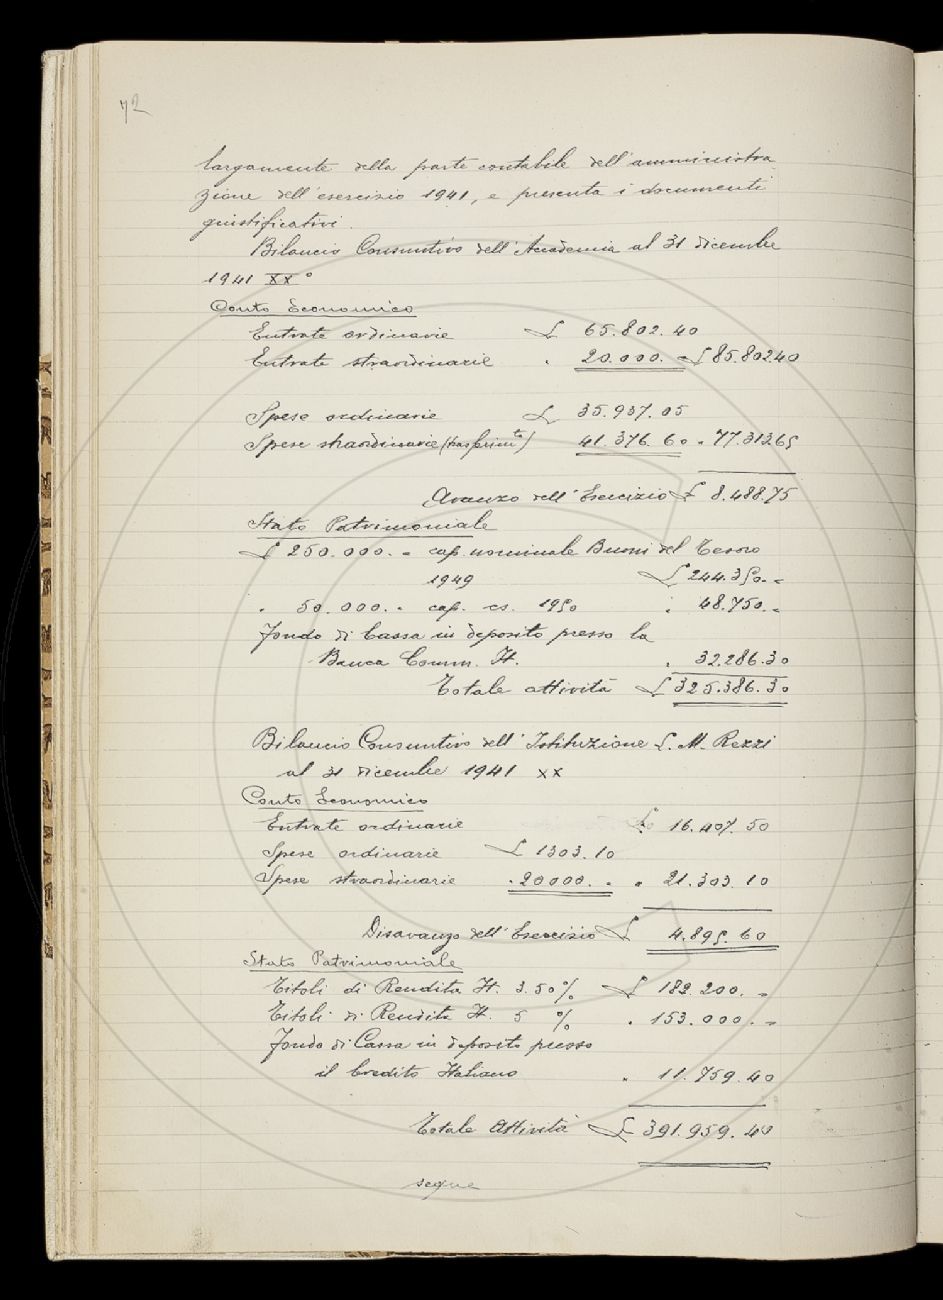 72
largamente della parte contabile dell'amministra
zione dell'esercizio 1941, e presenta i documenti
giustificativi.
Bilancio Consuntivo dell'Accademia al 31 dicembre
1941 XX°
Conto Economico
Entrate ordinarie £ 65.802.40
Entrate straordinarie " 20.000. = £ 85.802.40
Spese ordinarie £ 35.937.05
Spese straordinarie (trasferim.to) 41.376.60 " 77.313.65
Avanzo dell'Esercizio £ 8.488.75
Stato Patrimoniale
£ 250.000. = cap. nominale Buoni del Tesoro
1949 £ 244.350. =
" 50.000. = cap. cs. 1950 " 48.750. =
Fondo di Cassa in deposito presso la
Banca Comm. It. " 32.286.30
Totale attività £ 325.386.30
Bilancio Consuntivo dell'Istituzione L. M. Rezzi
al 31 dicembre 1941 XX
Conto Economico
Entrate ordinarie £ 16.407.50
Spese ordinarie £ 1303.10
Spese straordinarie " 20000. = " 21.303.10
Disavanzo dell'Esercizio £ 4.895.60
Stato Patrimoniale
Titoli di Rendita It. 3.50% £ 182.200. =
Titoli di Rendita It. 5 % " 153.000. =
Fondo di Cassa in deposito presso
il Credito Italiano " 11.759.40
Totale Attività £ 391.959.40
segue